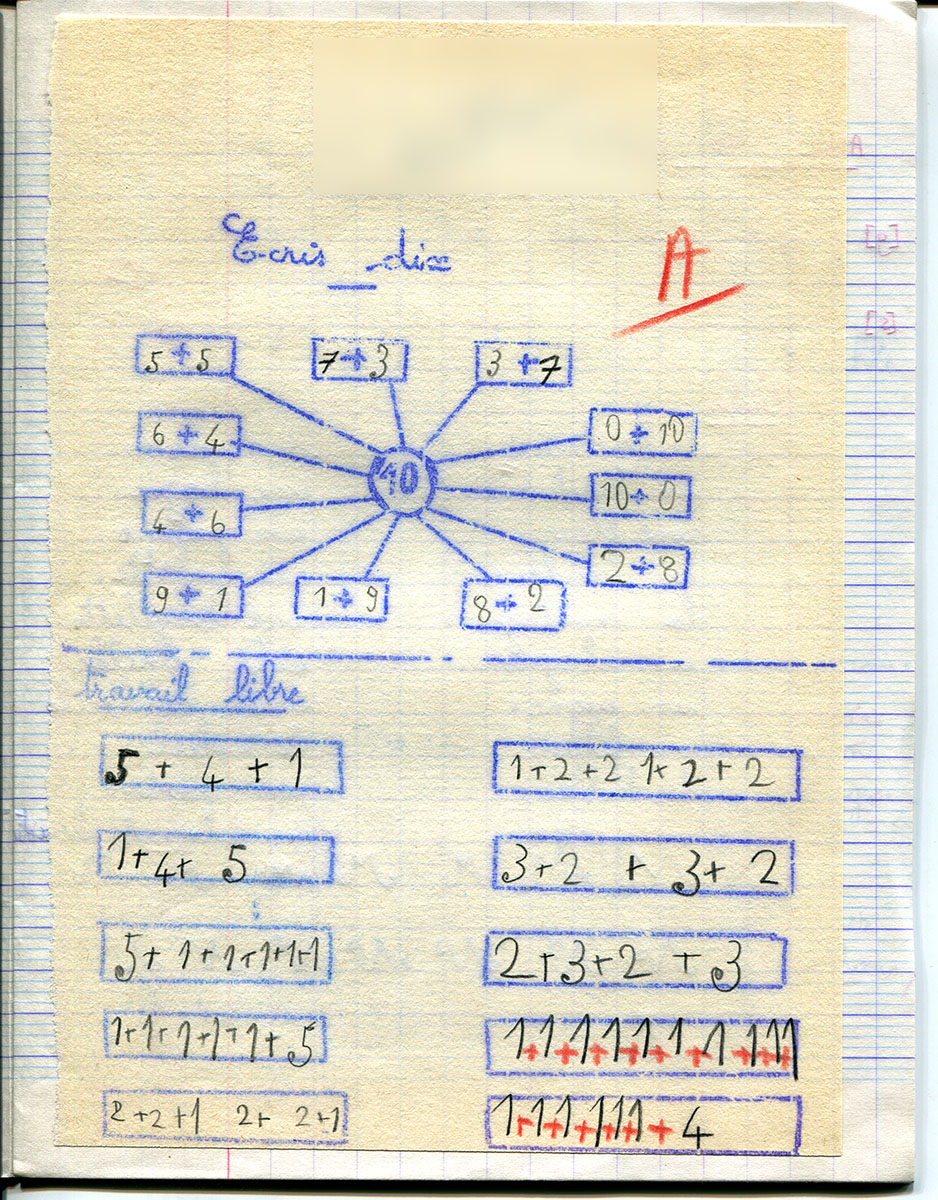 Ecris dix
A
5 + 5
7 + 3
3 + 7
6 + 4
0 + 10
10
4 + 6
10 + 0
9 + 1
1 + 9
8 + 2
2 + 8
travail libre
5 + 4 + 1
1+2+2 1+2+2
1+4+ 5
3+2 + 3+ 2
5+ 1+1+1+1+1
2+3+2 + 3
1+1+1+1+1+5
1+1+1+1+1+1+1+1+1+1
2+2+1 2+ 2+1
1+1+1+1+1+1+4